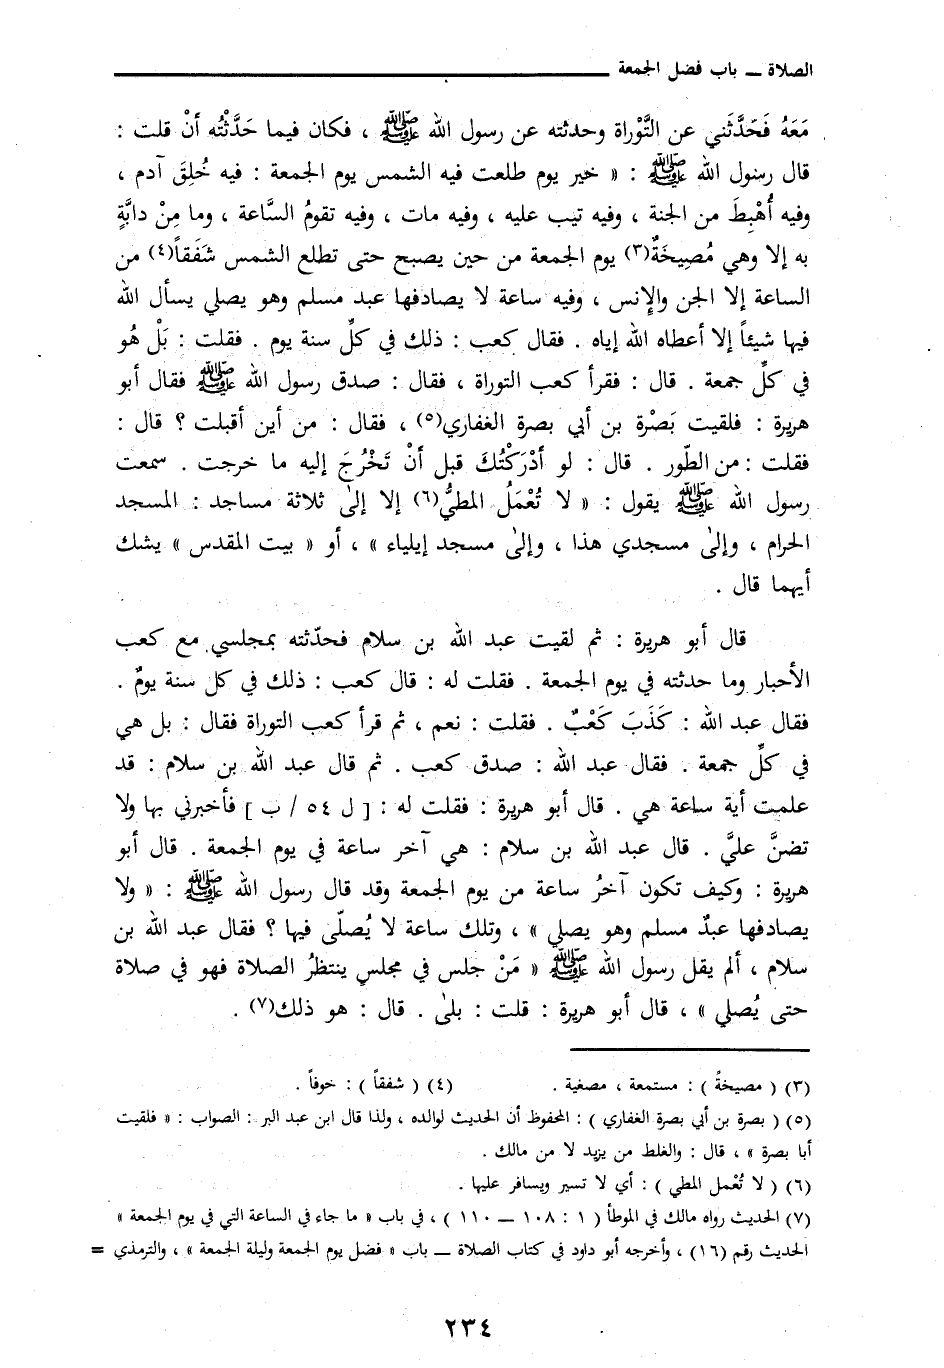 الصلاة ــ باب فضل الجمعة
مَعَهُ فَحَدَّثَني عن التَّوْراة وحدثته عن رسول الله ﷺ ، فكان فيما حَدَّثْتُه أنْ قلت :
قال رسول الله ﷺ : « خير يوم طلعت فيه الشمس يوم الجمعة : فيه خُلِقَ آدم ،
وفيه أُهْبِطَ من الجنة ، وفيه تيب عليه ، وفيه مات ، وفيه تقومُ السَّاعة ، وما مِنْ دابَّةٍ
به إلا وهي مُصِيخَةٌ(٣) يوم الجمعة من حين يصبح حتى تطلع الشمس شَفَقاً(٤) من
الساعة إلا الجن والإنس ، وفيه ساعة لا يصادفها عبد مسلم وهو يصلي يسأل الله
فيها شيئاً إلا أعطاه الله إياه . فقال كعب : ذلك في كلِّ سنة يوم . فقلت : بَلْ هُو
في كلِّ جمعة . قال : فقرأ كعب التوراة ، فقال : صدق رسول الله ﷺ فقال أبو
هريرة : فلقيت بَصْرة بن أبي بصرة الغفاري(٥) ، فقال : من أين أقبلت ؟ قال :
فقلت : من الطّور . قال : لو أدْرَكْتُكَ قبل أنْ تَخْرُجَ إليه ما خرجت . سمعت
رسول الله ﷺ يقول : « لا تُعْمَلُ المطيُّ(٦) إلا إلىٰ ثلاثة مساجد : المسجد
الحرام ، وإلىٰ مسجدي هذا ، وإلىٰ مسجد إيلياء » ، أو « بيت المقدس » يشك
أيهما قال .
قال أبو هريرة : ثم لقيت عبد الله بن سلام فحدّثته بمجلسي مع كعب
الأحبار وما حدثته في يوم الجمعة . فقلت له : قال كعب : ذلك في كل سنة يومٌ .
فقال عبد الله : كَذَبَ كَعْبٌ . فقلت : نعم ، ثم قرأ كعب التوراة فقال : بل هي
في كلِّ جمعة . فقال عبد الله : صدق كعب . ثم قال عبد الله بن سلام : قد
علمت أية ساعة هي . قال أبو هريرة : فقلت له : [ ل ٥٤ / ب ] فأخبرني بها ولا
تضنَّ عليَّ . قال عبد الله بن سلام : هي آخر ساعة في يوم الجمعة . قال أبو
هريرة : وكيف تكون آخرُ ساعة من يوم الجمعة وقد قال رسول الله ﷺ : « ولا
يصادفها عبدٌ مسلم وهو يصلي » ، وتلك ساعة لا يُصلّى فيها ؟ فقال عبد الله بن
سلام ، ألم يقل رسول الله ﷺ « مَنْ جلس في مجلس ينتظرُ الصلاة فهو في صلاة
حتى يُصلي » ، قال أبو هريرة : قلت : بلىٰ . قال : هو ذلك(٧) .
(٣) ( مصيخةً ) : مستمعة ، مصغية . (٤) ( شفقاً ) : خوفاً .
(٥) ( بصرة بن أبي بصرة الغفاري ) : المحفوظ أن الحديث لوالده ، ولذا قال ابن عبد البر : الصواب : « فلقيت
أبا بصرة » ، قال : والغلط من يزيد لا من مالك .
(٦) ( لا تُعْمل المطي ) : أي لا تسير ويسافر عليها .
(٧) الحديث رواه مالك في الموطأ ( ١ : ١٠٨ ــ ١١٠ ) ، في باب « ما جاء في الساعة التي في يوم الجمعة »
الحديث رقم (١٦) ، وأخرجه أبو داود في كتاب الصلاة ــ باب « فضل يوم الجمعة وليلة الجمعة » ، والترمذي =
٢٣٤